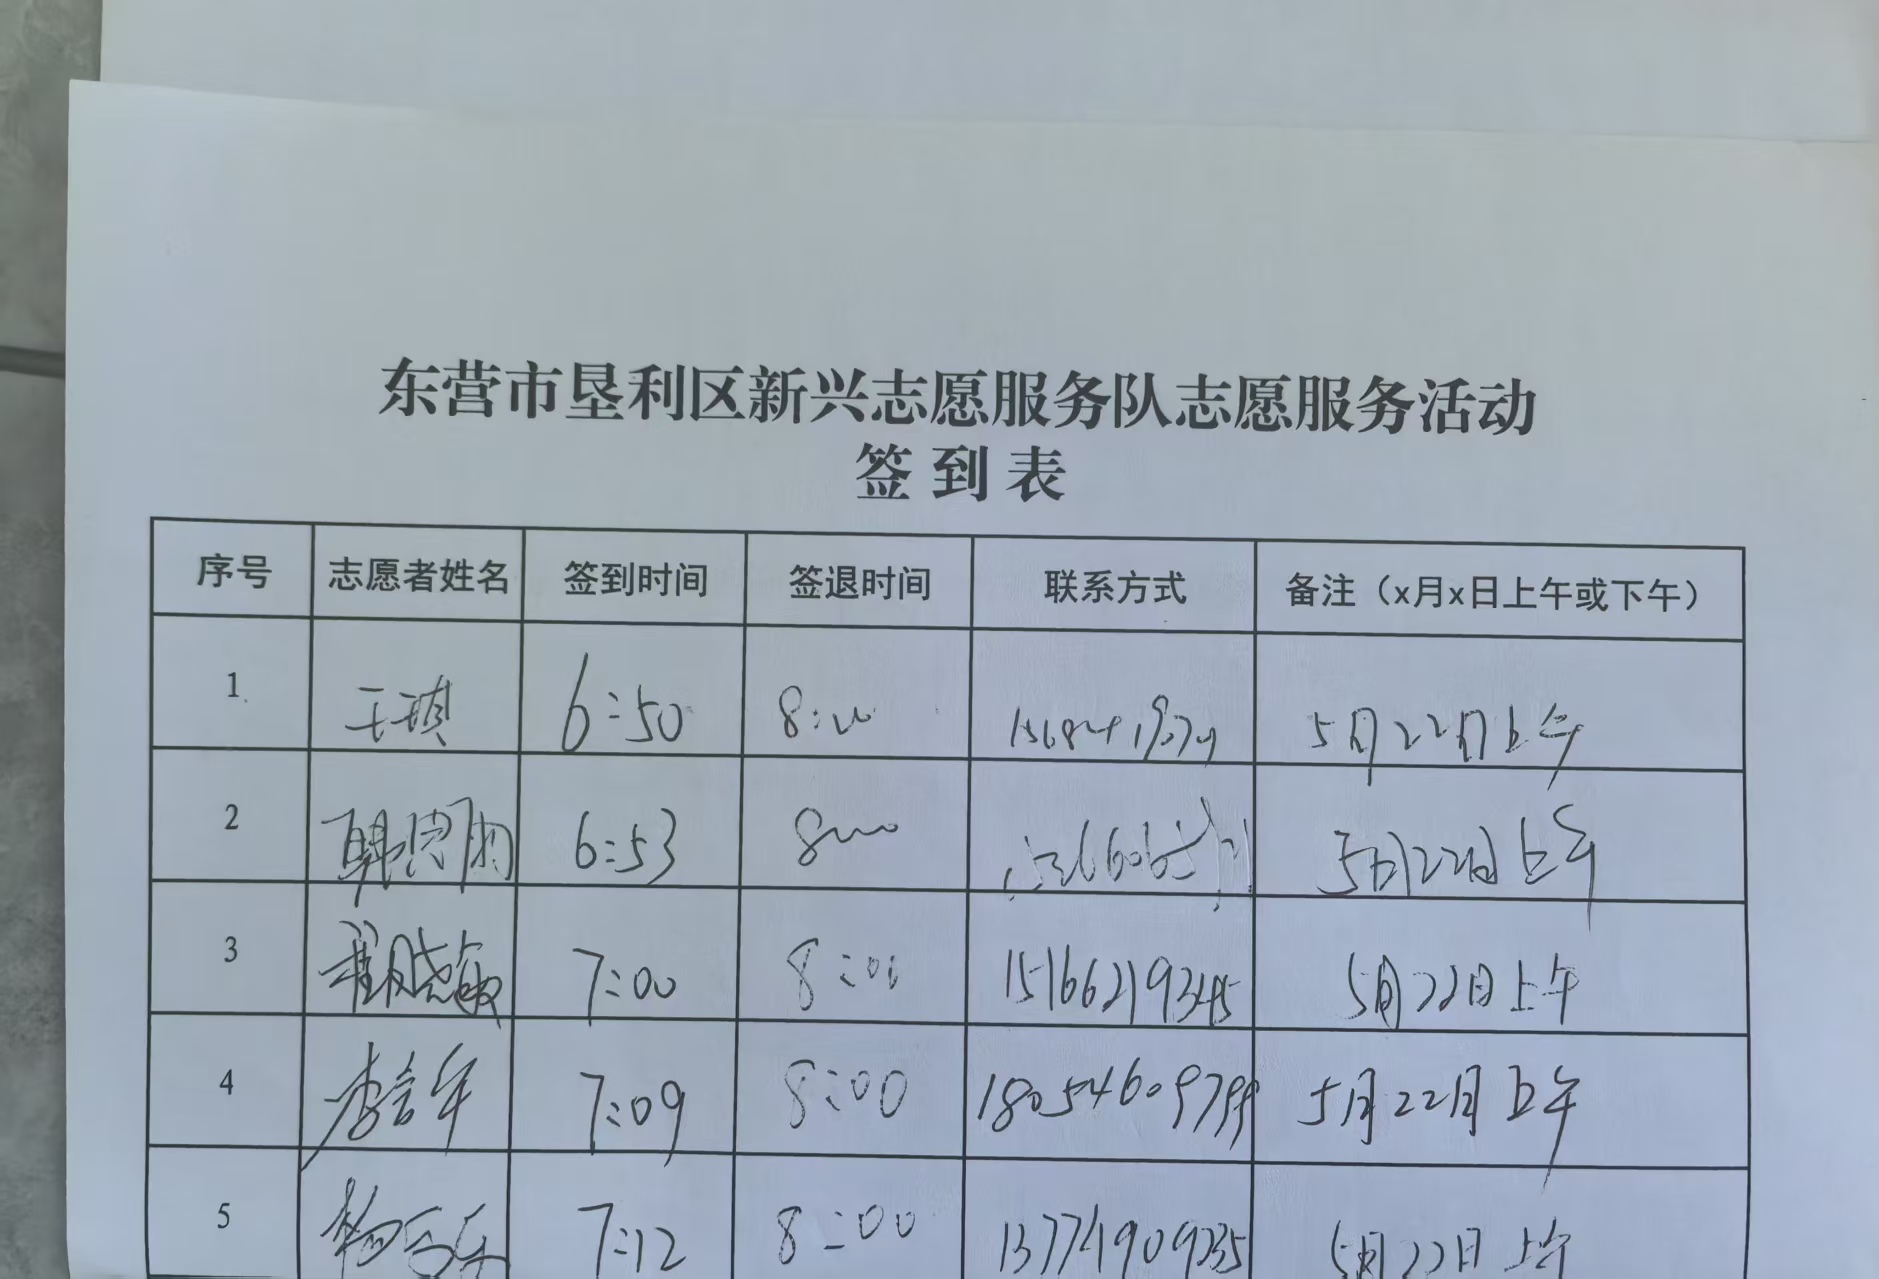 东营市垦利区新兴志愿服务队志愿服务活动
签到表
序号 志愿者姓名 签到时间 签退时间 联系方式 备注（x月x日上午或下午）
1 王琪 6:50 8:00 5月22日上午
2 6:53 8:00 5月22日上午
3 崔晓敏 7:00 8:00 15166219345 5月22日上午
4 7:09 8:00 18054609799 5月22日上午
5 7:12 8:00 5月22日上午